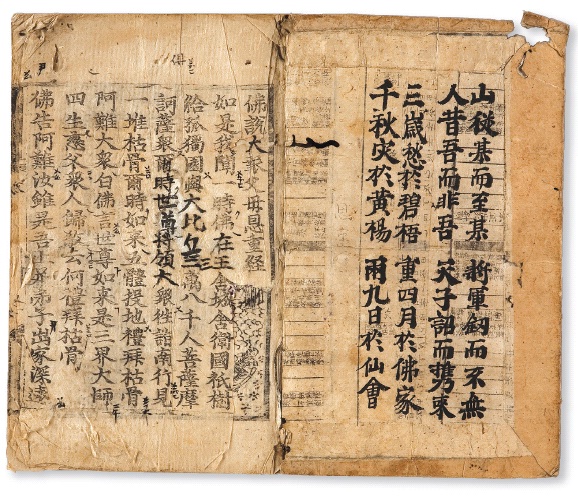 山從某而至某 將軍釼而不無
人昔吾而非吾 父子詔而携來
三歲愁於碧梧 重四月於佛家
千秋突於黃楊 雨九日於仙會
佛說大報父母恩重經
如是我聞一時佛在王舍城舍衛國祇樹
給孤獨園與大比丘三萬八千人菩薩摩
訶薩衆爾時世尊將領大衆往詣南行見
一堆枯骨爾時如來五體投地禮拜枯骨
阿難大衆白佛言世尊如來是三界大師
四生慈父衆人歸敬云何禮拜枯骨
佛告阿難汝雖是吾上足弟子出家深遠